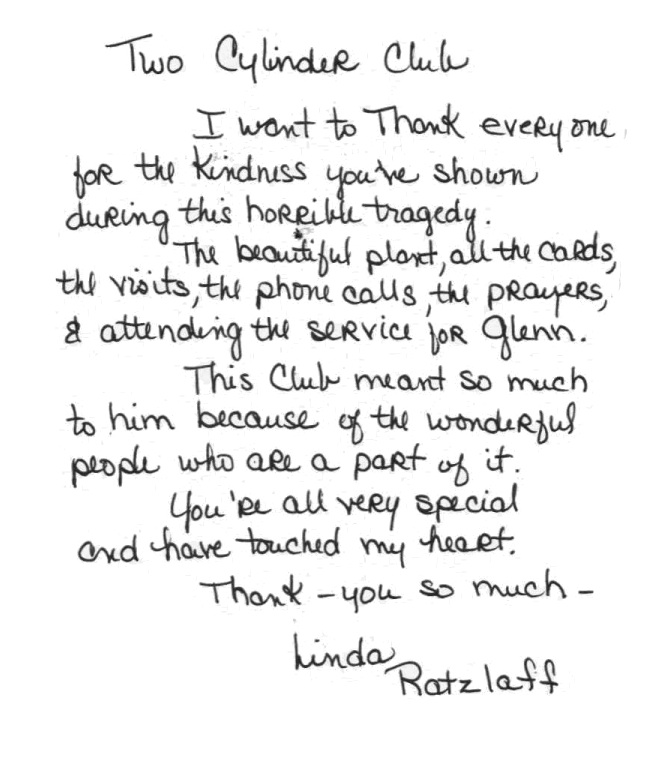 Two Cylinder Club
I want to Thank everyone
for the kindness you've shown
during this horrible tragedy.
The beautiful plant, all the cards,
the visits, the phone calls, the prayers,
& attending the service for Glenn.
This Club meant so much
to him because of the wonderful
people who are a part of it.
You're all very special
and have touched my heart.
Thank-you so much -
Linda
Ratzlaff